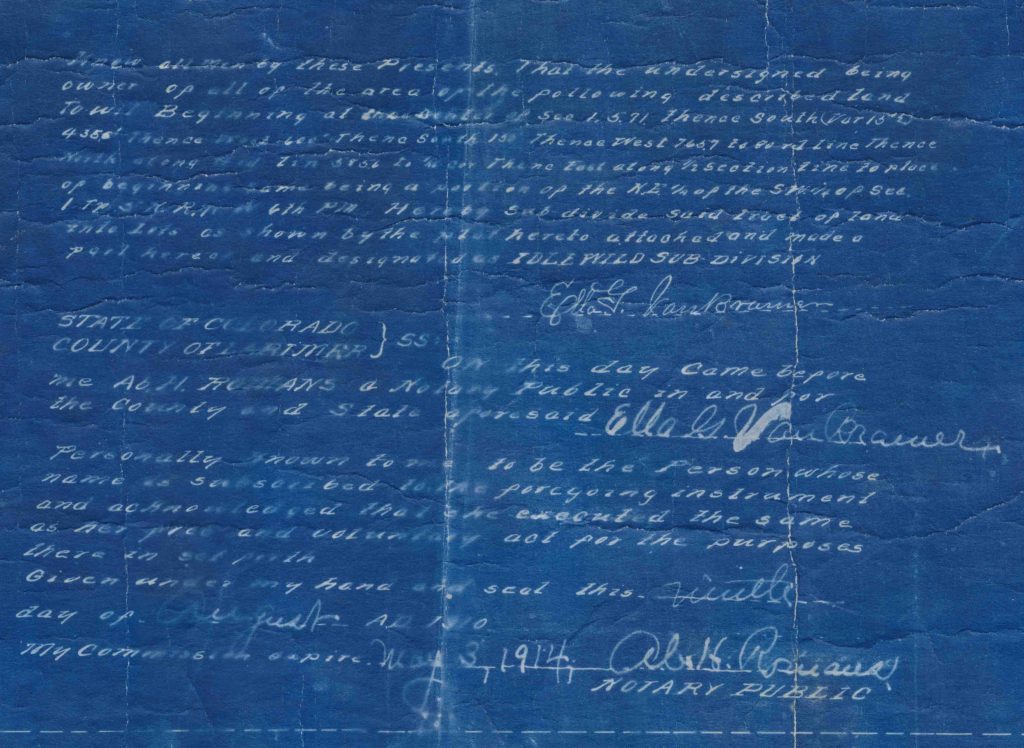 Know all Men by these Presents, That the undersigned being
owner of all of the area of the following described land
To wit Beginning at of Sec 1.5.71, thence South (Var 15°)
4356' thence Thence South Thence West 7657 to line Thence
North along line to Thence East along ½ section line to place
of beginning same being a portion of the NE ¼ of the SW ¼ of Sec
1 6th PM. Hereby Sub divide said tract of land
into lots as shown by the plat hereto attached and made a
part hereof and designated as IDLEWILD SUB-DIVISION
Ella G. Van Bramer
STATE OF COLORADO
COUNTY OF LARIMER } SS
On this day came before
me Ab. H. ROMANS a Notary Public in and for
the County and State aforesaid Ella G. Van Bramer
Personally known to me to be the Person whose
name is subscribed to the foregoing instrument
and acknowledged that she executed the same
as her free and voluntary act for the purposes
there in set forth
Given under my hand and seal this ninth
day of August A.D. 1910
My Commission expire May 3, 1914, Ab. H. Romans
NOTARY PUBLIC